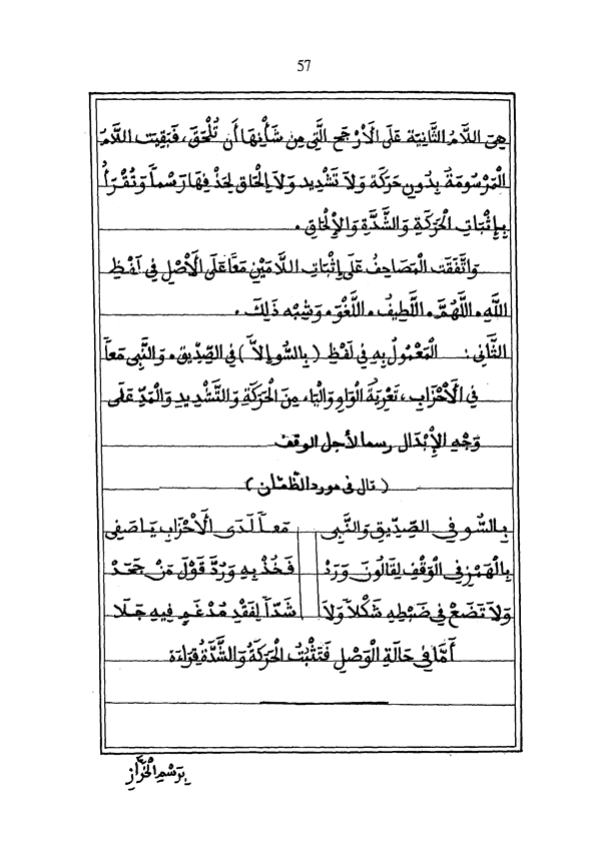 57
هِيَ اللَّامُ الثَّانِيَةُ عَلَى الْأَرْجَحِ الَّتِي مِن شَأْنِهَا أَن تُلْحَقَ، فَبَقِيَتِ اللَّامُ
الْمَرْسُومَةُ بِدُونِ حَرَكَةٍ وَلَا تَشْدِيدٍ وَلَا إِلْحَاقٍ لِحَذْفِهَا رَسْماً وَتُقْرَأُ
بِإِثْبَاتِ الْحَرَكَةِ وَالشَّدَّةِ وَالْإِلْحَاقِ.
وَاتَّفَقَتِ الْمَصَاحِفُ عَلَى إِثْبَاتِ اللَّامَيْنِ مَعاً عَلَى الْأَصْلِ فِي لَفْظِ
اللَّهِ. اللَّهُمَّ. اللَّطِيفُ. اللَّغْوِ. وَشِبْهِ ذَلِكَ.
الثَّانِي: الْمَعْمُولُ بِهِ فِي لَفْظِ (بِالسُّوِ إِلاَّ) فِي الصِّدِّيقِ. وَالنَّبِي مَعاً
فِي الْأَحْزَابِ، تَعْرِيَةُ الْوَاوِ وَالْيَاءِ مِنَ الْحَرَكَةِ وَالتَّشْدِيدِ وَالْمَدِّ عَلَى
وَجْهِ الْإِبْدَالِ رسما لأجل الوقف
(قال في مورد الظمآن)
بِالسُّوِ فِي الصِّدِّيقِ وَالنَّبِي مَعاً لَدَى الْأَحْزَابِ يَا صَفِي
بِالْهَمْزِ فِي الْوَقْفِ لِقَالُونَ وَرَدْ فَخُذْ بِهِ وَرُدَّ قَوْلَ مَنْ جَحَدْ
وَلَا تَضَعْ فِي ضَبْطِهِ شَكْلاً وَلَا شَدّاً لِفَقْدِ مُدْغَمٍ فِيهِ جَلَا
أَمَّا فِي حَالَةِ الْوَصْلِ فَتَثْبُتُ الْحَرَكَةُ وَالشَّدَّةُ قِرَاءَة
بِرَسْمِ الْخَرَّازِ